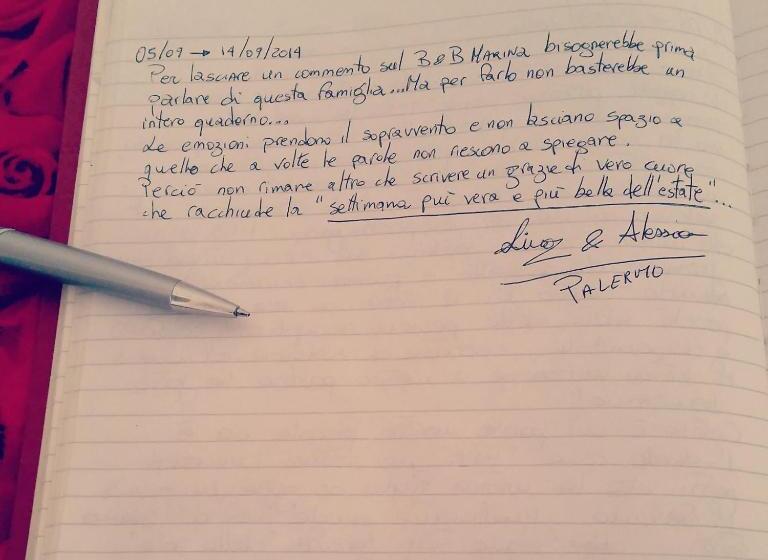 05/09 → 14/09/2014
Per lasciare un commento sul B&B MARINA bisognerebbe prima
parlare di questa famiglia...Ma per farlo non basterebbe un
intero quaderno...
Le emozioni prendono il sopravvento e non lasciano spazio a
quello che a volte le parole non riescono a spiegare.
Perciò non rimane altro che scrivere un grazie di vero cuore
che racchiude la "settimana più vera e più bella dell'estate"...
& Alessia
PALERMO